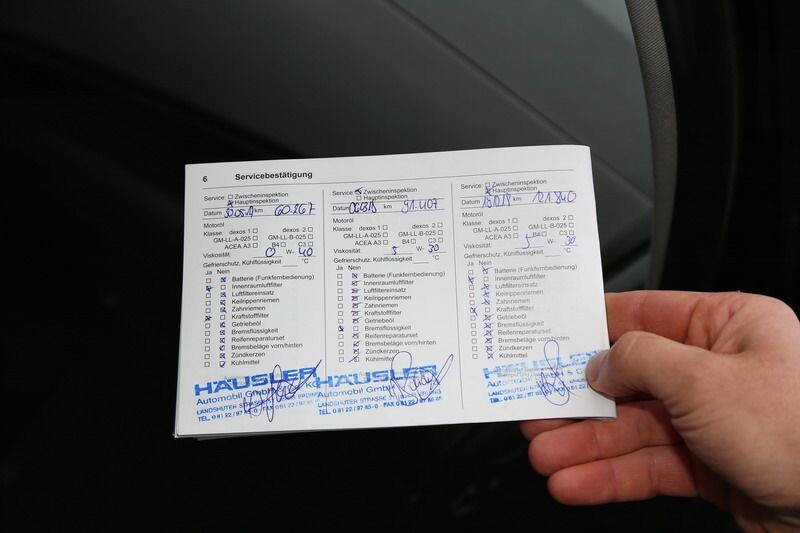 6 Servicebestätigung
Service: Zwischeninspektion
Hauptinspektion
Datum km 60.267
Motoröl
Klasse: dexos 1 dexos 2
GM-LL-A-025 GM-LL-B-025
ACEA A3 B4 C3
Viskosität: 0 W- 40
Gefrierschutz, Kühlflüssigkeit °C
Ja Nein
Batterie (Funkfernbedienung)
Innenraumluftfilter
Luftfiltereinsatz
Keilrippenriemen
Zahnriemen
Kraftstofffilter
Getriebeöl
Bremsflüssigkeit
Reifenreparaturset
Bremsbeläge vorn/hinten
Zündkerzen
Kühlmittel
HÄUSLER
Automobil GmbH KG
LANDSHUTER STRASSE
TEL. 0 81 22 / 97 FAX 0 81 22 / 97
Service: Zwischeninspektion
Hauptinspektion
Datum km 91.407
Motoröl
Klasse: dexos 1 dexos 2
GM-LL-A-025 GM-LL-B-025
ACEA A3 B4 C3
Viskosität: 5 W- 30
Gefrierschutz, Kühlflüssigkeit °C
Ja Nein
Batterie (Funkfernbedienung)
Innenraumluftfilter
Luftfiltereinsatz
Keilrippenriemen
Zahnriemen
Kraftstofffilter
Getriebeöl
Bremsflüssigkeit
Reifenreparaturset
Bremsbeläge vorn/hinten
Zündkerzen
Kühlmittel
HÄUSLER
Automobil GmbH
LANDSHUTER STRASSE
TEL. 0 81 22 / 97 85-0 FAX 0 81 22
Service: Zwischeninspektion
Hauptinspektion
Datum km 121.840
Motoröl
Klasse: dexos 1 dexos 2
GM-LL-A-025 GM-LL-B-025
ACEA A3 B4 C3
Viskosität: 5 W- 30
Gefrierschutz, Kühlflüssigkeit °C
Ja Nein
Batterie (Funkfernbedienung)
Innenraumluftfilter
Luftfiltereinsatz
Keilrippenriemen
Zahnriemen
Kraftstofffilter
Getriebeöl
Bremsflüssigkeit
Reifenreparaturset
Bremsbeläge vorn/hinten
Zündkerzen
Kühlmittel
HÄUSLER
Automobil
LANDSHUTER
TEL. 0 81 22 / 97